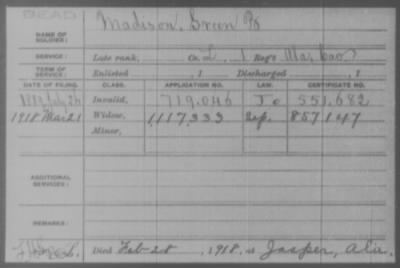 DEAD
NAME OF SOLDIER: Madison, Green B
SERVICE: Late rank, Co. L, 1 Reg't Ala. Cav.
TERM OF SERVICE: Enlisted , 1 Discharged , 1
DATE OF FILING. CLASS. APPLICATION NO. LAW. CERTIFICATE NO.
1889 July 26 Invalid, 719.046 J 551.682
1918 Mar 21 Widow, 1117,333 857147
Minor,
ADDITIONAL SERVICES:
REMARKS:
Died Feb 28, 1918, at Jasper, Ala.